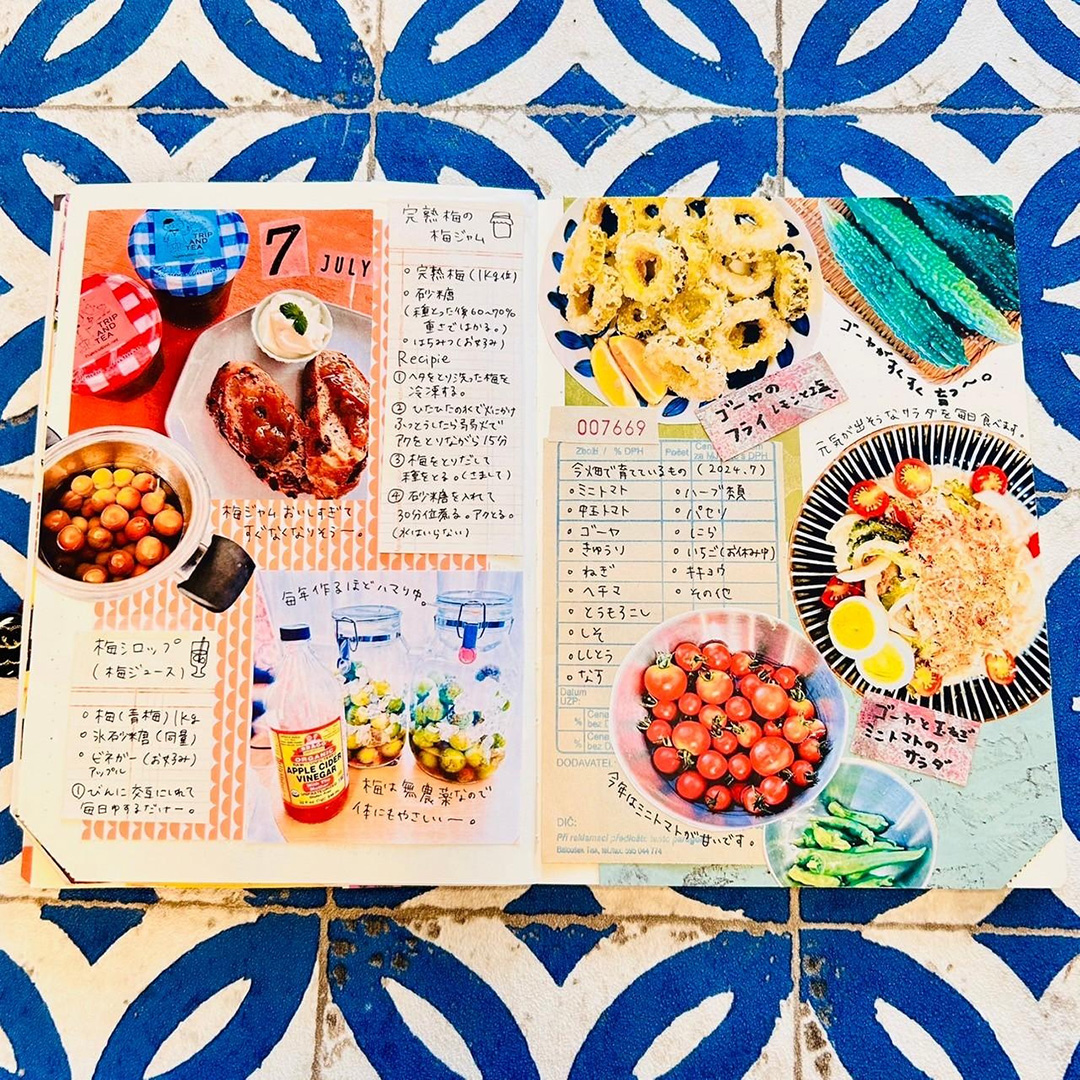 TRIP
AND
TEA
TRIP
AND
TEA
7
JULY
完熟梅の
梅ジャム
○ 完熟梅(1Kg位)
○ 砂糖
(種とった後60〜70%
重さではかる。)
○ はちみつ(お好み)
Recipie
① ヘタをとり洗った梅を
冷凍する。
② ひたひたの水で火にかけ
ふっとうしたら弱火で
アクをとりながら15分
③ 梅をとりだして
種をとる。(さまして)
④ 砂糖を入れて
30分位煮る。アクとる。
(水はいらない)
梅ジャムおいしすぎて
すぐなくなりそうー。
毎年作るほどハマり中。
梅シロップ
(梅ジュース)
○ 梅(青梅)1kg
○ 氷砂糖(同量)
○ ビネガー(お好み)
アップル
①びんに交互にいれて
毎日ゆするだけー。
ORGANIC
APPLE CIDER
VINEGAR
梅は無農薬なので
体にもやさしいー。
ゴーヤの
フライ レモンと塩で
ゴーヤがすくすく育つ〜。
元気が出そうなサラダを毎日食べます。
007669
Zboží / % DPH
Počet
今畑で育てているもの (2024.7)
○ミニトマト
○ハーブ類
○中玉トマト
○パセリ
○ゴーヤ
○にら
○きゅうり
○いちご(お休み中)
○ねぎ
○キキョウ
○ヘチマ
○その他
○とうもろこし
○しそ
○ししとう
○なす
Datum
UZP:
%
Cena
bez D
%
Cena
bez D
DODAVATEL
今年はミニトマトが甘いです。
DIČ:
Při reklamaci předložte tento
ゴーヤと玉ねぎ
ミニトマトの
サラダ